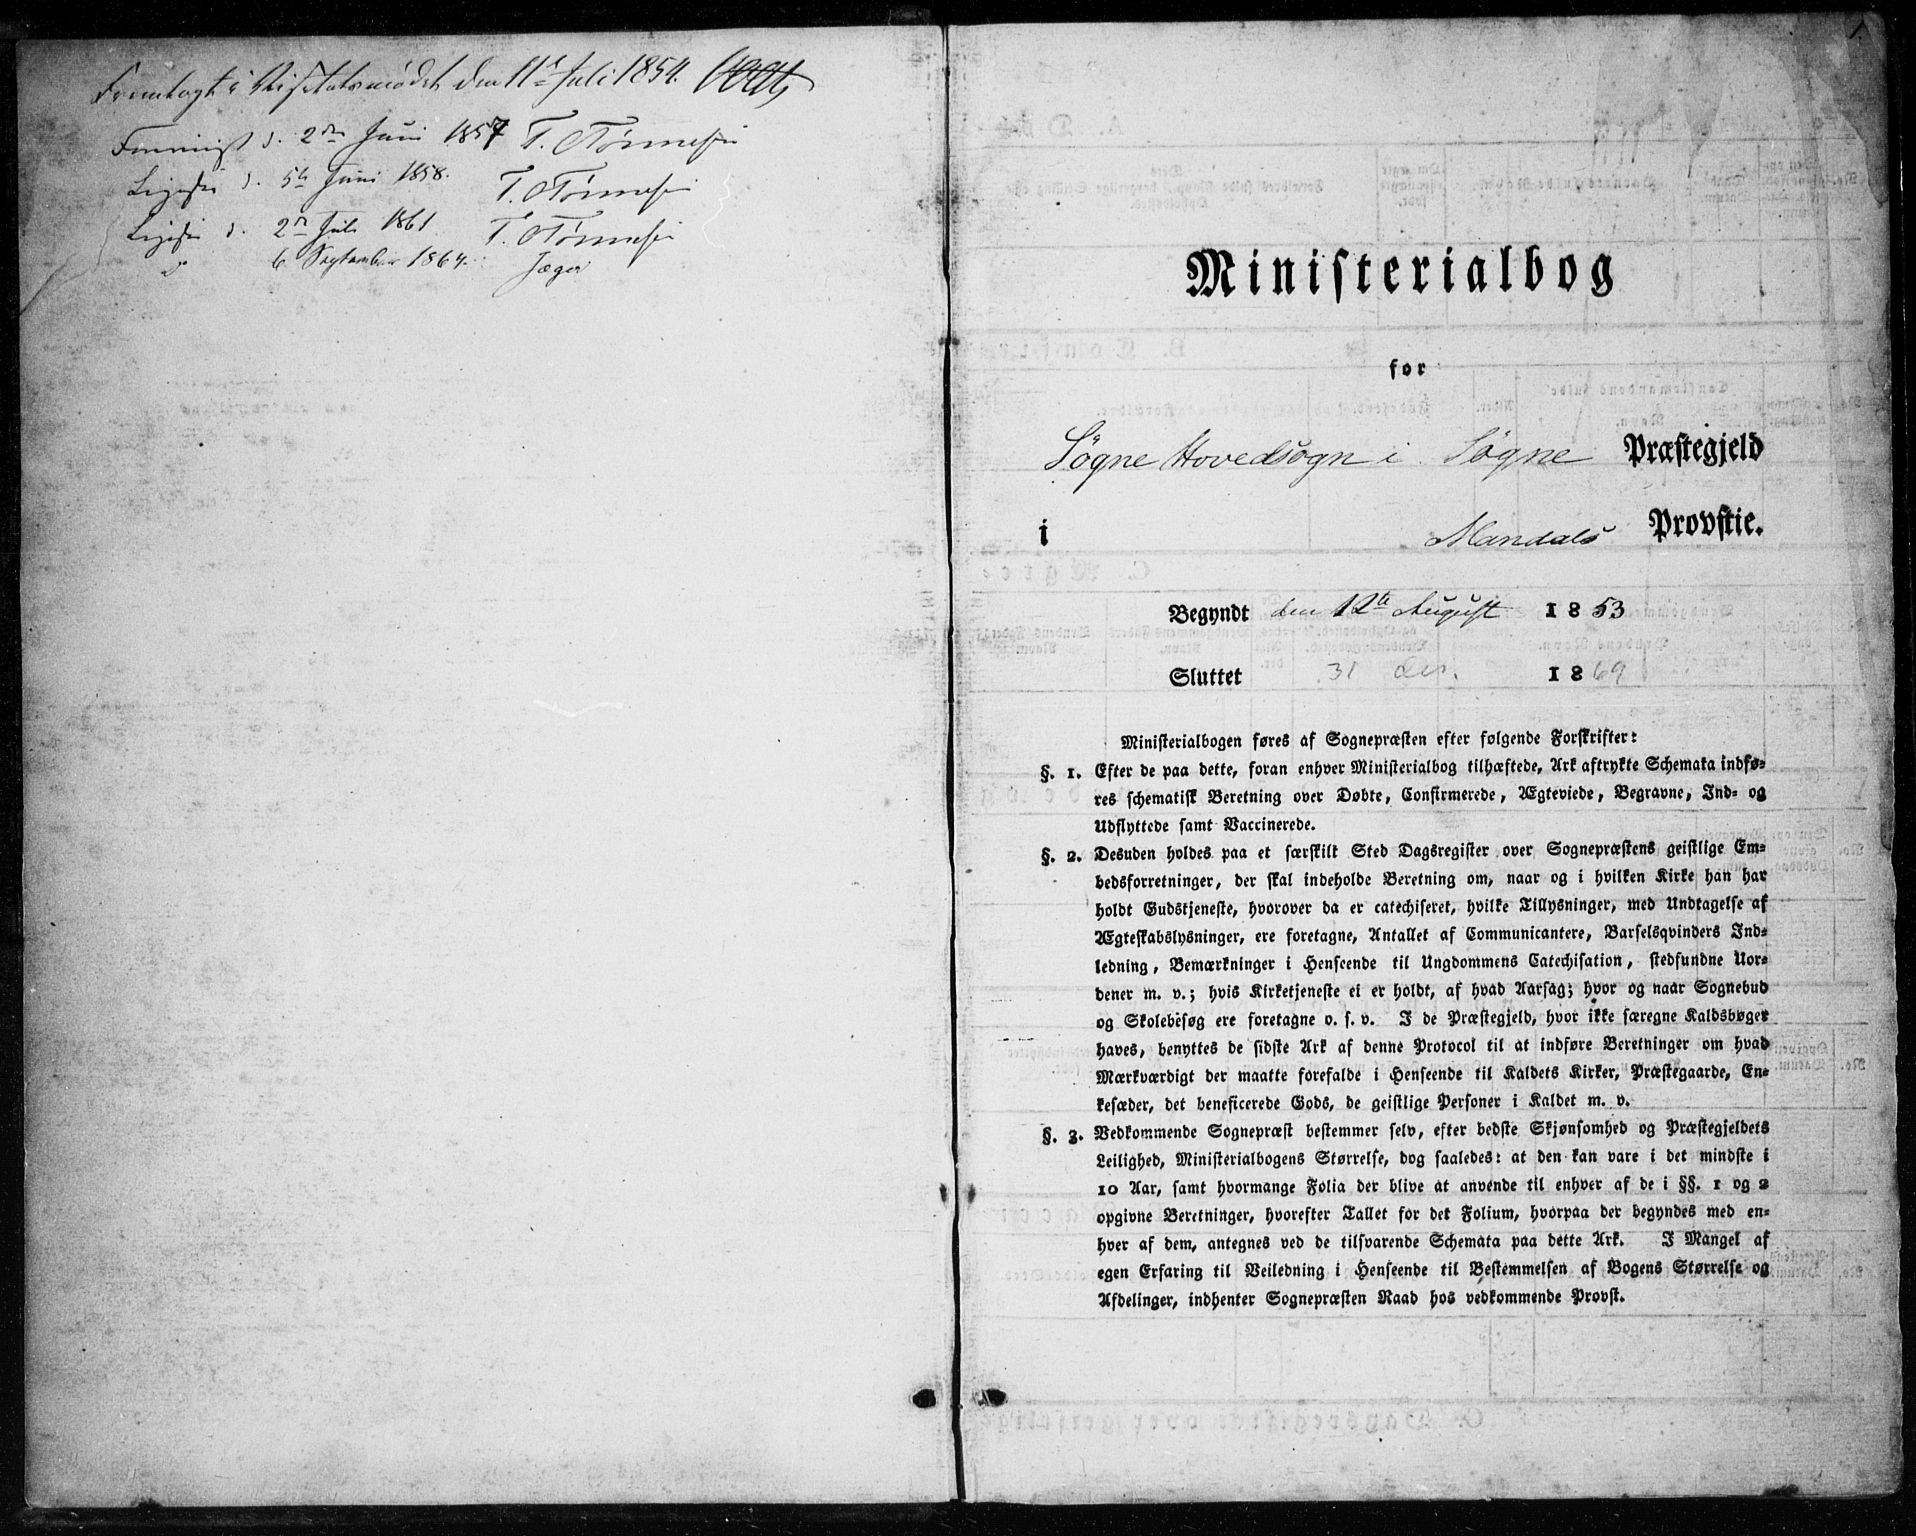 Fremlagt i Visitatsmødet den 11te Juli 1854.
Foreviist d. 2den Juni 1857 T. Tönnesen
Ligesaa d. 5te Juni 1858. T. Tönnesen
Ligesaa d. 2den Juli 1861 T. Tönnesen
6 September 1864. Jæger
1.
Ministerialbog
for
Søgne Hovedsogn i Søgne Præstegjeld
i Mandals Provstie.
Begyndt den 12te August 1853
Sluttet 31 Des. 1869
Ministerialbogen føres af Sognepræsten efter følgende Forskrifter:
§. 1. Efter de paa dette, foran enhver Ministerialbog tilhæftede, Ark aftrykte Schemata indfø-
res schematisk Beretning over Døbte, Confirmerede, Ægteviede, Begravne, Ind- og
Udflyttede samt Vaccinerede.
§. 2. Desuden holdes paa et særskilt Sted Dagsregister over Sognepræstens geistlige Em-
bedsforretninger, der skal indeholde Beretning om, naar og i hvilken Kirke han har
holdt Gudstjeneste, hvorover da er catechiseret, hvilke Tillysninger, med Undtagelse af
Ægteskabslysninger, ere foretagne, Antallet af Communicantere, Barselsqvinders Ind-
ledning, Bemærkninger i Henseende til Ungdommens Catechisation, stedfundne Uor-
dener m. v.; hvis Kirketjeneste ei er holdt, af hvad Aarsag; hvor og naar Sognebud
og Skolebesøg ere foretagne o. s. v. I de Præstegjeld, hvor ikke særegne Kaldsbøger
haves, benyttes de sidste Ark af denne Protocol til at indføre Beretninger om hvad
Mærkværdigt der maatte forefalde i Henseende til Kaldets Kirker, Præstegaarde, En-
kesæder, det beneficerede Gods, de geistlige Personer i Kaldet m. v.
§. 3. Vedkommende Sognepræst bestemmer selv, efter bedste Skjønsomhed og Præstegjeldets
Leilighed, Ministerialbogens Størrelse, dog saaledes: at den kan vare i det mindste i
10 Aar, samt hvormange Folia der blive at anvende til enhver af de i §§. 1 og 2
opgivne Beretninger, hvorefter Tallet for det Folium, hvorpaa der begyndes med en-
hver af dem, antegnes ved de tilsvarende Schemata paa dette Ark. I Mangel af
egen Erfaring til Veiledning i Henseende til Bestemmelsen af Bogens Størrelse og
Afdelinger, indhenter Sognepræsten Raad hos vedkommende Provst.